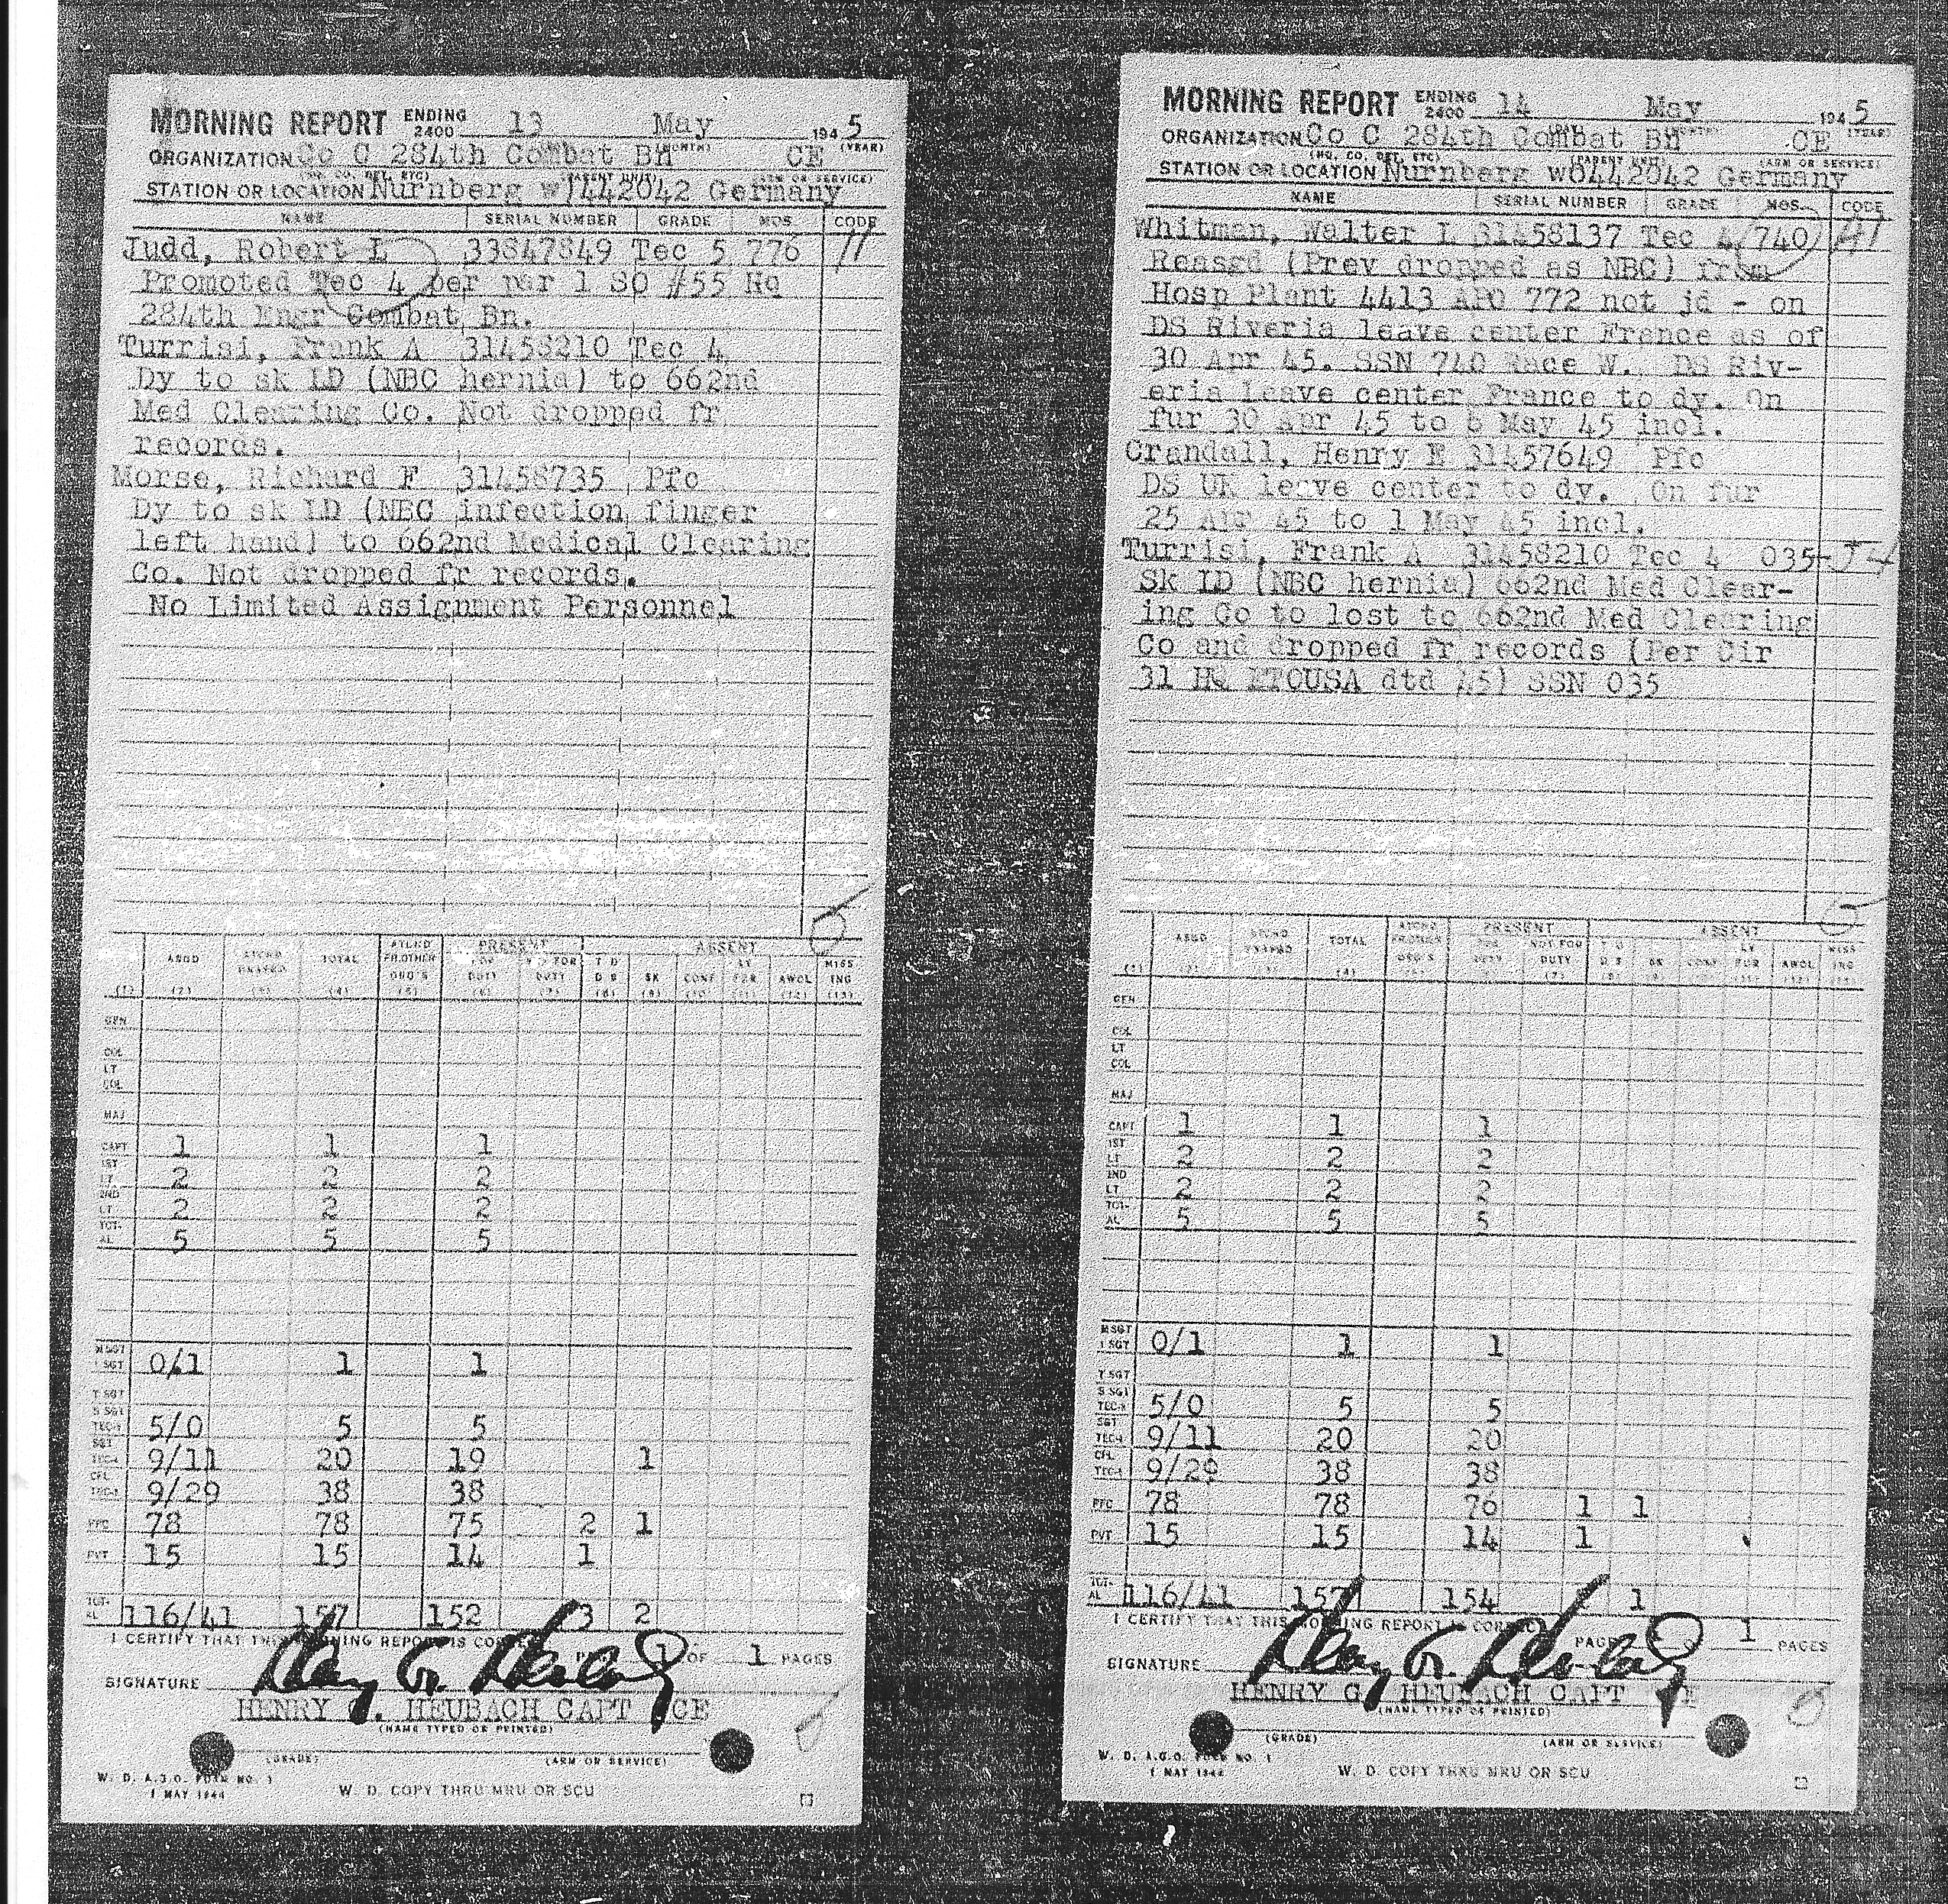 MORNING REPORT ENDING 2400 13 May 1945
ORGANIZATION Co C 284th Combat Bn CE
(HQ. CO. DET. ETC) (PARENT UNIT) (ARM OR SERVICE)
STATION OR LOCATION Nurnberg wJ442042 Germany
NAME SERIAL NUMBER GRADE MOS CODE
Judd, Robert L 33847849 Tec 5 776
Promoted Tec 4 per par 1 SO #55 Hq
284th Engr Combat Bn.
Turrisi, Frank A 31458210 Tec 4
Dy to sk LD (NBC hernia) to 662nd
Med Clearing Co. Not dropped fr
records.
Morse, Richard F 31458735 Pfc
Dy to sk LD (NBC infection finger
left hand) to 662nd Medical Clearing
Co. Not dropped fr records.
No Limited Assignment Personnel
ASGD ATCHD UNASGD TOTAL ATCHD FR OTHER ORG'S PRESENT FOR DUTY NOT FOR DUTY ABSENT T D D S SK CONF LV FUR AWOL MISS ING
(1) (2) (3) (4) (5) (6) (7) (8) (9) (10) (11) (12) (13)
GEN
COL
LT COL
MAJ
CAPT 1 1 1
1ST LT 2 2 2
2ND LT 2 2 2
TOT-AL 5 5 5
M SGT 1 SGT 0/1 1 1
T SGT
S SGT TEC-3 5/0 5 5
SGT TEC-4 9/11 20 19 1
CPL TEC-5 9/29 38 38
PFC 78 78 75 2 1
PVT 15 15 14 1
TOT-AL 116/41 157 152 3 2
I CERTIFY THAT THIS MORNING REPORT IS CORRECT PAGE 1 OF 1 PAGES
SIGNATURE Henry G. Heubach
HENRY G. HEUBACH CAPT CE
(NAME TYPED OR PRINTED)
(GRADE) (ARM OR SERVICE)
W. D. A.G.O. FORM NO. 1
1 MAY 1944 W. D. COPY THRU MRU OR SCU
MORNING REPORT ENDING 2400 14 May 1945
ORGANIZATION Co C 284th Combat Bn CE
(HQ. CO. DET. ETC) (PARENT UNIT) (ARM OR SERVICE)
STATION OR LOCATION Nurnberg wO442042 Germany
NAME SERIAL NUMBER GRADE MOS CODE
Whitman, Walter L 31458137 Tec 4 740
Reasgd (Prev dropped as NBC) from
Hosp Plant 4413 APO 772 not jd - on
DS Riveria leave center France as of
30 Apr 45. SSN 740 Race W. DS Riv-
eria Leave center France to dy. On
fur 30 Apr 45 to 8 May 45 incl.
Crandall, Henry E 31457649 Pfc
DS UK leave center to dy. On fur
25 Apr 45 to 1 May 45 incl.
Turrisi, Frank A 31458210 Tec 4 035
Sk LD (NBC hernia) 662nd Med Clear-
ing Co to lost to 662nd Med Clearing
Co and dropped fr records (Per Cir
31 HQ ETOUSA dtd 45) SSN 035
ASGD ATCHD UNASGD TOTAL ATCHD FR OTHER ORG'S PRESENT FOR DUTY NOT FOR DUTY ABSENT T D D S SK CONF LV FUR AWOL MISS ING
GEN
COL
LT COL
MAJ
CAPT 1 1 1
1ST LT 2 2 2
2ND LT 2 2 2
TOT-AL 5 5 5
M SGT 1 SGT 0/1 1 1
T SGT
S SGT TEC-3 5/0 5 5
SGT TEC-4 9/11 20 20
CPL TEC-5 9/29 38 38
PFC 78 78 76 1 1
PVT 15 15 14 1
TOT-AL 116/41 157 154 1
I CERTIFY THAT THIS MORNING REPORT IS CORRECT PAGE 1 PAGES
SIGNATURE Henry G. Heubach
HENRY G. HEUBACH CAPT CE
(NAME TYPED OR PRINTED)
(GRADE) (ARM OR SERVICE)
W. D. A.G.O. FORM NO. 1
1 MAY 1944 W. D. COPY THRU MRU OR SCU